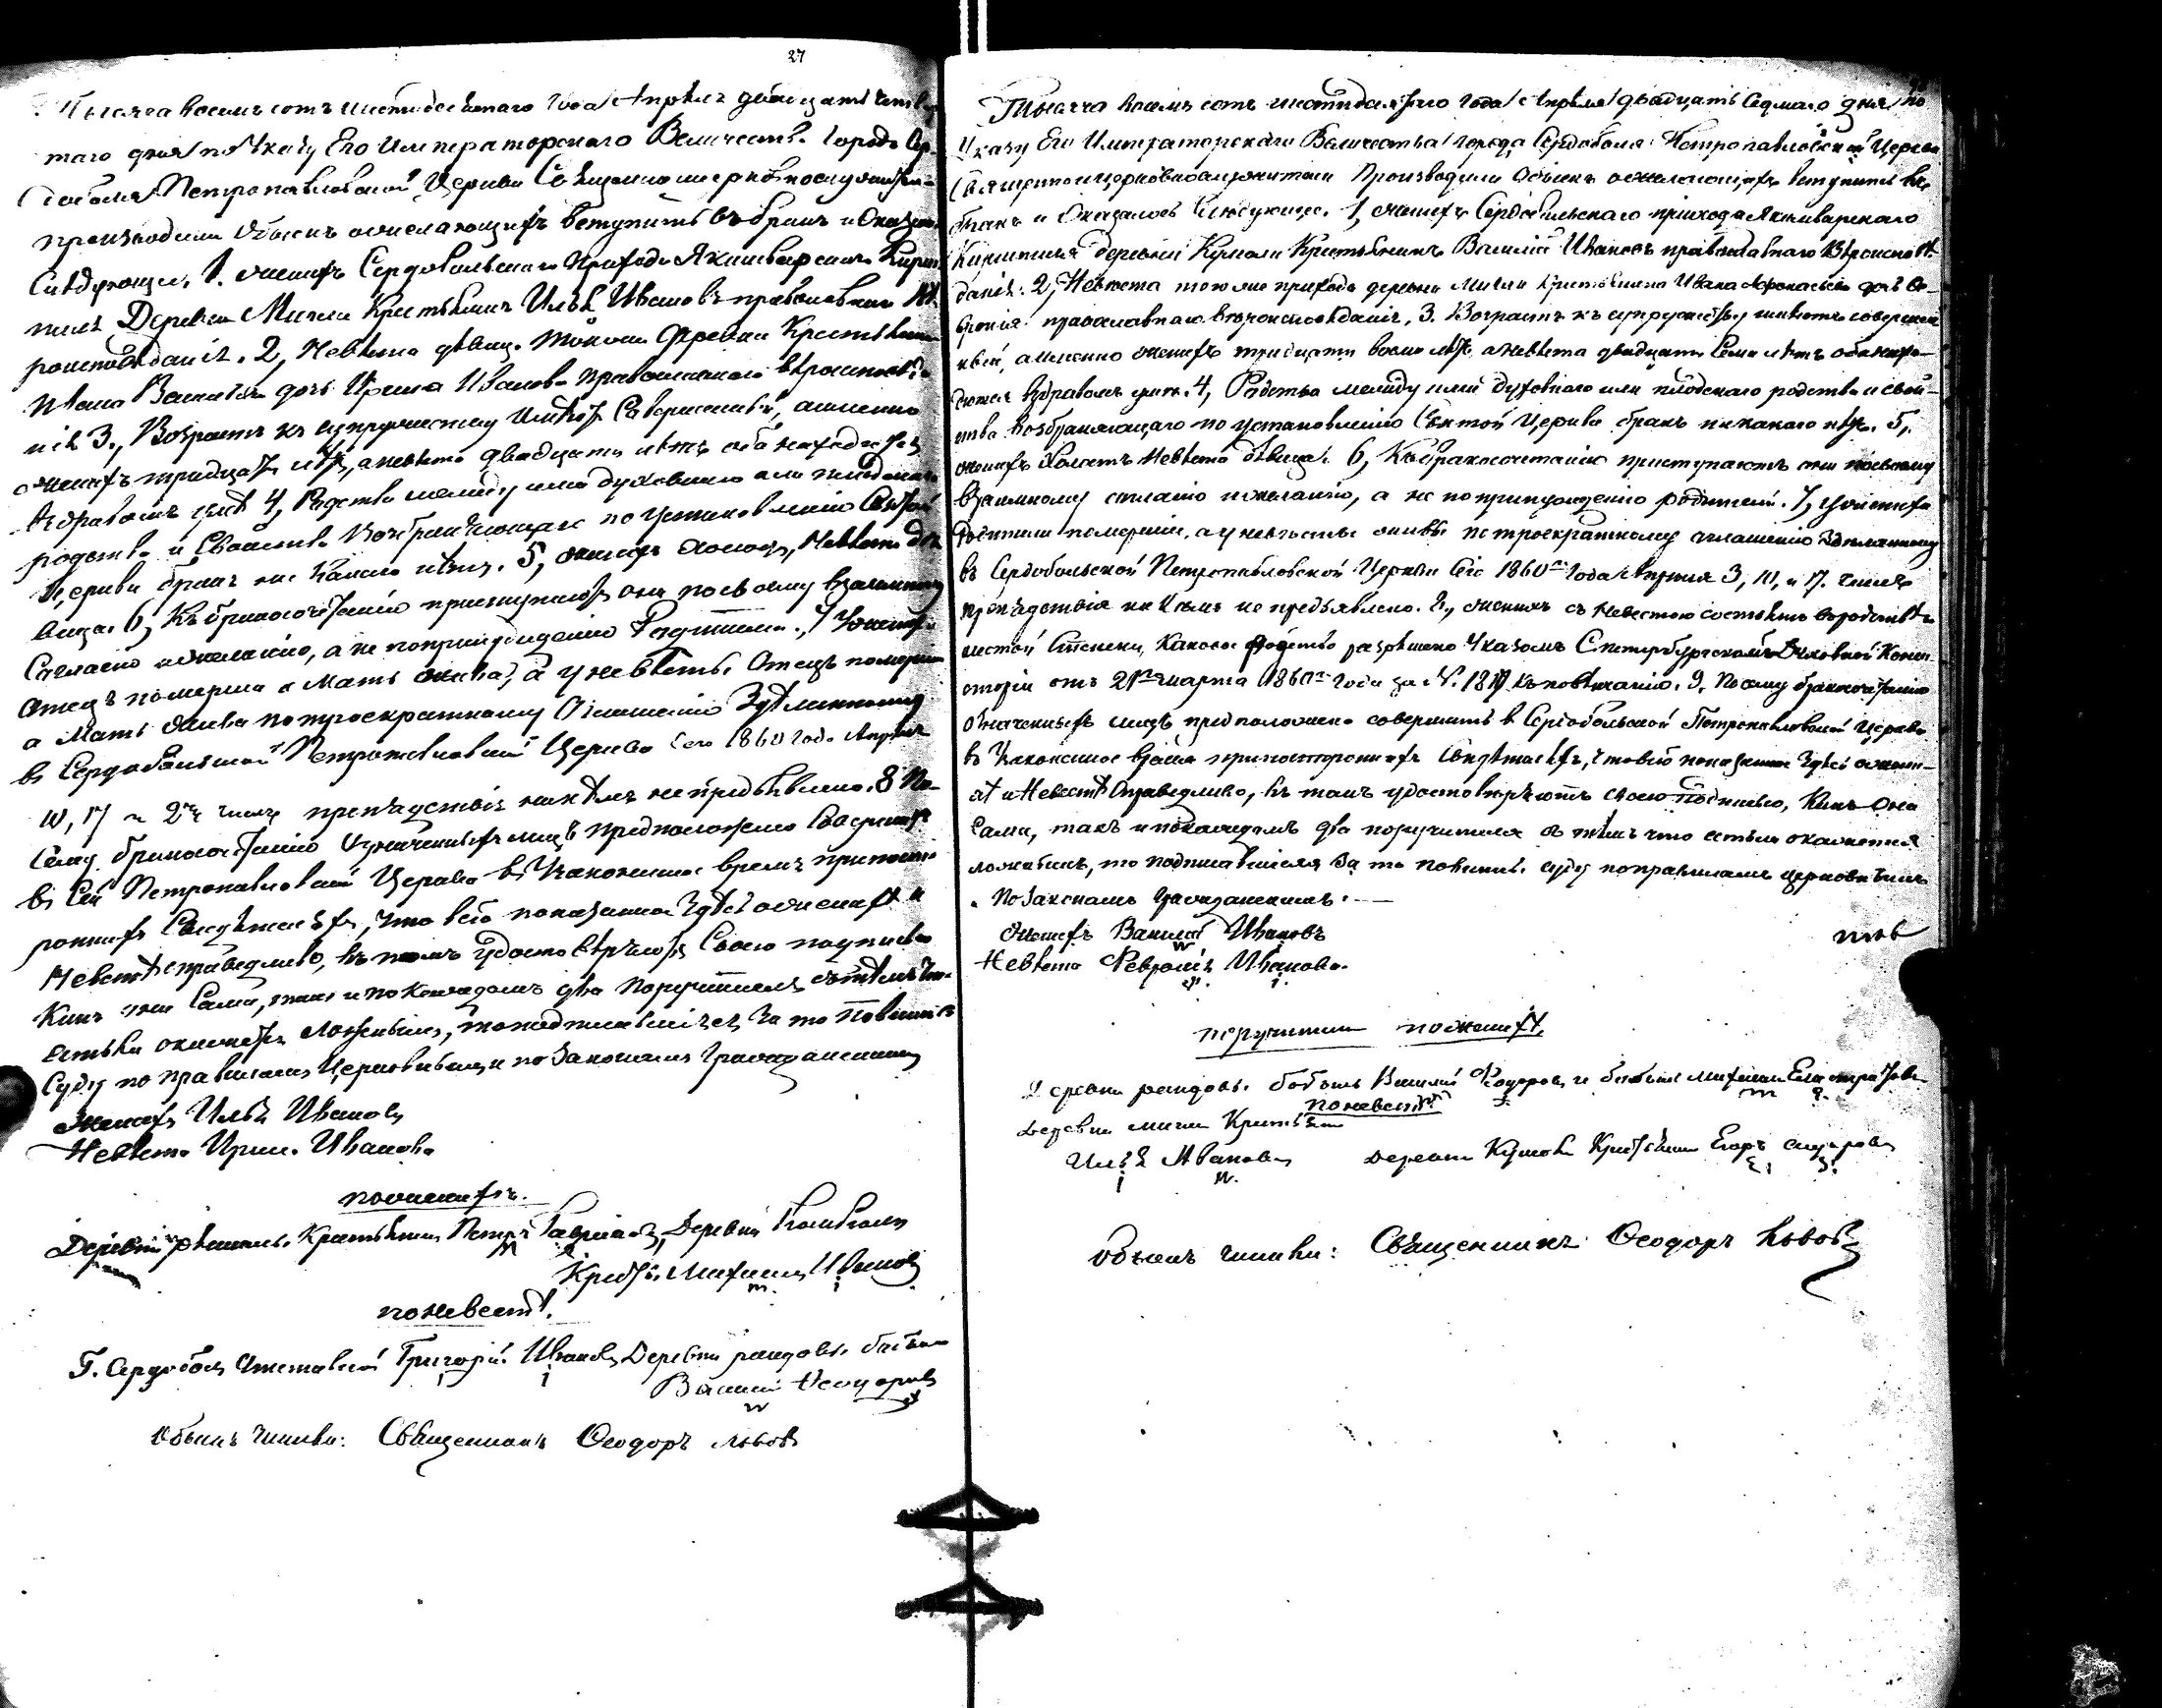 27
Тысяча восемь сотъ шестидесятаго года Апреля двадцать четвер
таго дня по Указу Его Императорскаго Величества города Сер-
доболя Петропавловской Церкви Священноцерковнослужители
производили обыскъ о желающихъ вступить въ бракъ и оказалось
следующее. 1. женихъ Сердобольскаго прихода Якимварскаго Кирх
пиля Деревни Мигли Крестьянинъ Илья Ивановъ православнаго вѣ
роисповѣданія. 2, Невѣста дѣвица тойже деревни Крестьянина
Ивана дочь Ирина Иванова православнаго вѣроисповѣда
нія 3., Возрастъ къ супружеству имѣютъ совершенный, а именно
женихъ тридцать лѣтъ, а невѣста двадцать лѣтъ оба находятся
въ здравомъ умѣ 4, Родства между ими духовнаго или плотскаго
родства и свойства возбраняющаго по установленію Святой
Церкви бракъ никакого нѣтъ. 5, женихъ холостъ, Невѣста дѣ
вица. 6, Къ бракосочетанію приступаютъ они по своему взаимному
согласію и желанію, а не по принужденію Родителей. 7 У жениха
отецъ померши а мать жива, а у невѣсты Отецъ померши
а Мать жива по троекратному оглашенію Здѣланному
въ Сердобольской Петропавловской Церкви сего 1860 года Апреля
10, 17 и числъ препядствія никѣмъ не предъявлено. 8 По
сему бракосочетанію означенныхъ лицъ предположено совершить
въ сей Петропавловской Церкви въ Узаконенное время при посто
роннихъ Свидѣтеляхъ, что всё показанное здѣсь о женихѣ и
Невестѣ справедливо, въ томъ удостовѣряютъ Своею подписью
Какъ они Сами, такъ и по каждомъ два Поручителя съ тѣмъ что
естьли окажется ложнымъ, то подписавшіеся за то повинны
Суду по правиламъ Церковнымъ и по Законамъ Гражданскимъ
Женихъ Илья Ивановъ
Невѣста Ирина Иванова
по женихѣ.
Деревни Крестьянинъ Петръ Гавриловъ, Деревни
Крестья. Михаилъ Ивановъ
по невестѣ.
Г. Сердоболя Григорій Ивановъ Деревни рандовы бобыль
Василій Ѳеодоровъ
Обыскъ чинилъ: Священникъ Ѳеодоръ Львовъ
Тысяча восемь сотъ шестидесятаго года Апреля двадцать седмаго дня по
Указу Его Императорскаго Величества города Сердоболя Петропавловской Церкви
Священноицерковнослужители Производили Обыскъ о желающихъ вступить въ
бракъ и Оказалось Слѣдующее. 1, женихъ Сердобольскаго прихода Якимварскаго
Кирхпиля деревни Кумоли Крестьянинъ Василій Ивановъ православнаго Вѣроисповѣ-
данія. 2, Невѣста тогоже прихода деревни Мигли Крестьянина Ивана дочь Ѳе-
вронія православнаго вѣроисповѣданія, 3. Возрастъ къ супружеству имѣютъ соверше
нный, а именно женихъ тридцати восми лѣтъ а невѣста двадцати Семи лѣтъ оба нахо-
дятся въ здравомъ умѣ. 4, Родства между ими духовнаго или плотскаго родства и свой-
ства возбраняющаго по установленію Святой Церкви бракъ никакого нѣтъ. 5,
женихъ Холостъ Невѣста дѣвица. 6, Къ бракосочетанію приступаютъ они по своему
взаимному согласію и желанію, а не по принужденію родителей. 7, у жениха
Родители померши, а у невѣсты живы по троекратному оглашенію Здѣланному
въ Сердобольской Петропавловской Церкви Сего 1860го года Апреля 3, 10, и 17. числъ
препядствія никѣмъ не предъявлено. 8, женихъ съ Невестою состоятъ въ родствѣ
шестой степени, каковое родство разрѣшено Указомъ Спетербургской Духовной Конси
сторіи отъ 21го марта 1860го года за №. 1817 къ повѣнчанію. 9, По сему бракосочетанію
означенныхъ лицъ предположено совершить въ Сердобольской Петропавловской Церкви
въ Узаконенное время при постороннихъ Свидѣтеляхъ, что всё показанное здѣсь о жени-
хѣ и Невестѣ Справедливо, въ томъ удостовѣряютъ своею подписью, Какъ Они
Сами, такъ и по каждомъ два поручителя съ тѣмъ что естьли окажется
ложнымъ, то подписавшіеся за то повинны суду по правиламъ церковнымъ
и по Законамъ Гражданскимъ.
Женихъ Василій Ивановъ
Невѣста Ѳевронія Иванова.
поручители по женихѣ,
Деревни рандовы бобыль Василій Ѳеодоровъ и бобыль Михаилъ
по невестѣ
Деревни мигли Крестьянинъ
Илья Ивановъ Деревни Кумоли Крестьянинъ Егоръ Сидоровъ
Обыскъ чинилъ: Священникъ Ѳеодоръ Львовъ